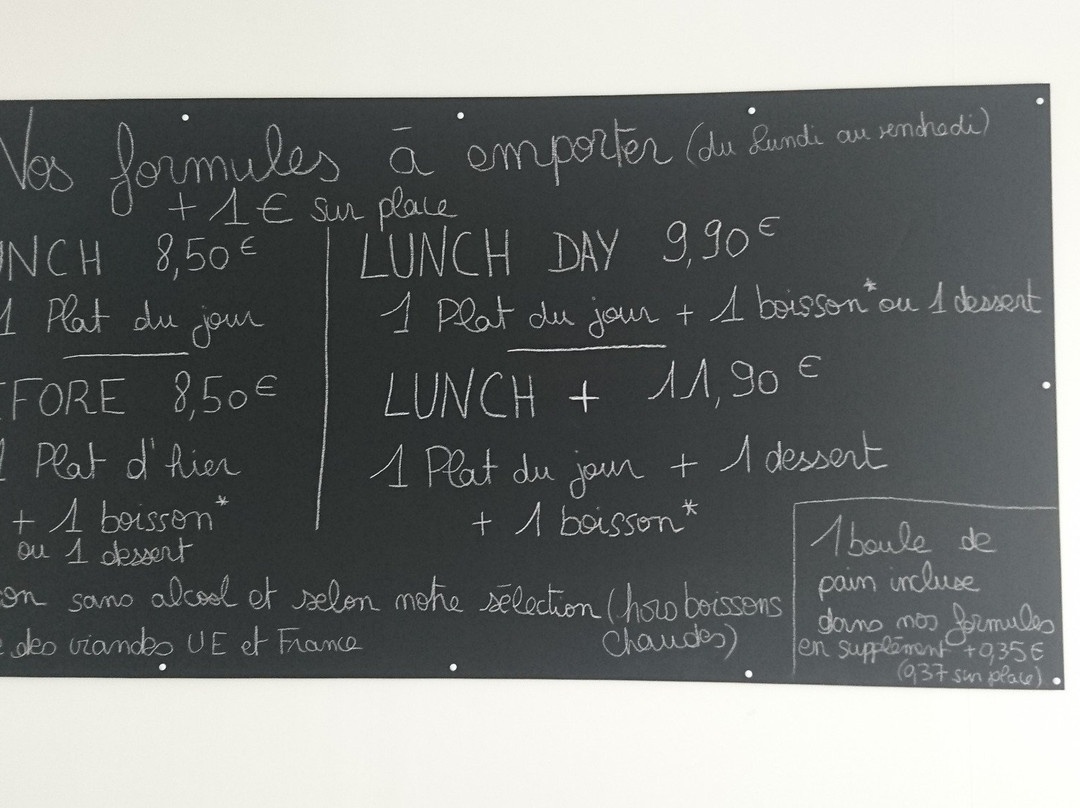 Vos formules à emporter (du Lundi au vendredi)
+ 1 € sur place
NCH 8,50€
1 Plat du jour
FORE 8,50€
1 Plat d'hier
+ 1 boisson*
ou 1 dessert
LUNCH DAY 9,90€
1 Plat du jour + 1 boisson* ou 1 dessert
LUNCH + 11,90 €
1 Plat du jour + 1 dessert
+ 1 boisson*
on sans alcool et selon notre sélection (hors boissons
chaudes)
des viandes UE et France
1 boule de
pain incluse
dans nos formules
en supplément +0,35€
(0,37 sur place)